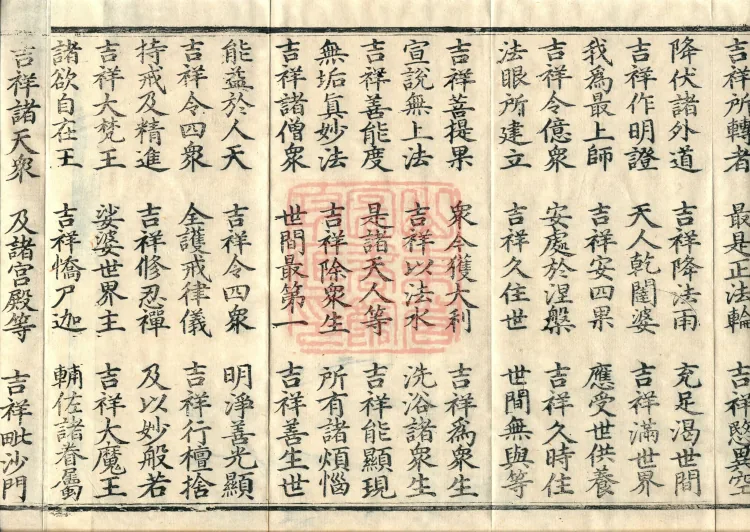 吉祥所轉者 最是正法輪 吉祥愍異空
降伏諸外道 吉祥降法雨 充足渴世間
吉祥作明證 天人乾闥婆 吉祥滿世界
我為最上師 吉祥安四果 應受世供養
吉祥令億衆 安處於涅槃 吉祥久時住
法眼所建立 吉祥久住世 世間無與等
吉祥菩提果 衆令獲大利 吉祥為衆生
宣說無上法 吉祥以法水 洗浴諸衆生
吉祥善能度 是諸天人等 吉祥能顯現
無垢真妙法 吉祥除衆生 所有諸煩惱
吉祥諸僧衆 世間最第一 吉祥善生世
能益於人天 吉祥令四衆 明淨善光顯
吉祥令四衆 全護戒律儀 吉祥行檀捨
持戒及精進 吉祥修忍禪 及以妙般若
吉祥大梵王 娑婆世界主 吉祥大魔王
諸欲自在王 吉祥憍尸迦 輔佐諸眷屬
吉祥諸天衆 及諸宮殿等 吉祥毗沙門